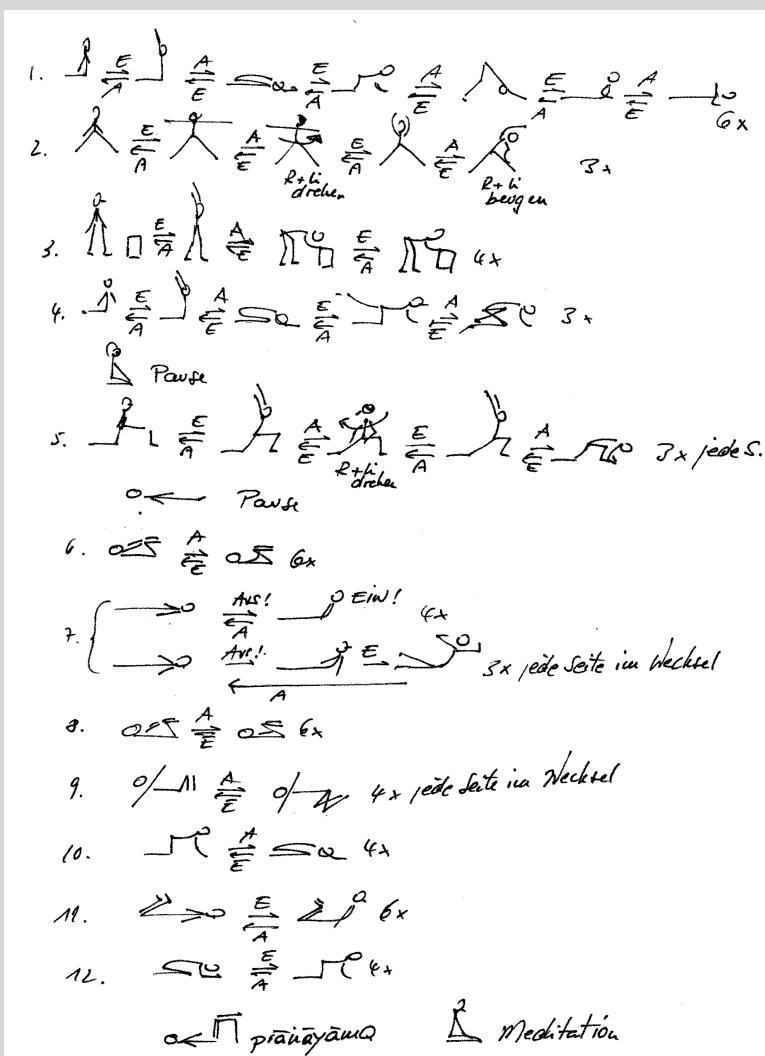 1. E A A E E A A E E A A E 6x
2. E A A E E A A E 3x
R+li drehen R+li beugen
3. E A A E E A 4x
4. E A A E E A A E 3x
Pause
5. E A A E E A A E 3x jede S.
R+li drehen
Pause
6. A E 6x
7. Aus! A Ein! 4x
Aus! E 3x jede Seite im Wechsel
A
8. A E 6x
9. A E 4x jede Seite im Wechsel
10. A E 4x
11. E A 6x
12. E A 4x
prāṇāyāma Meditation